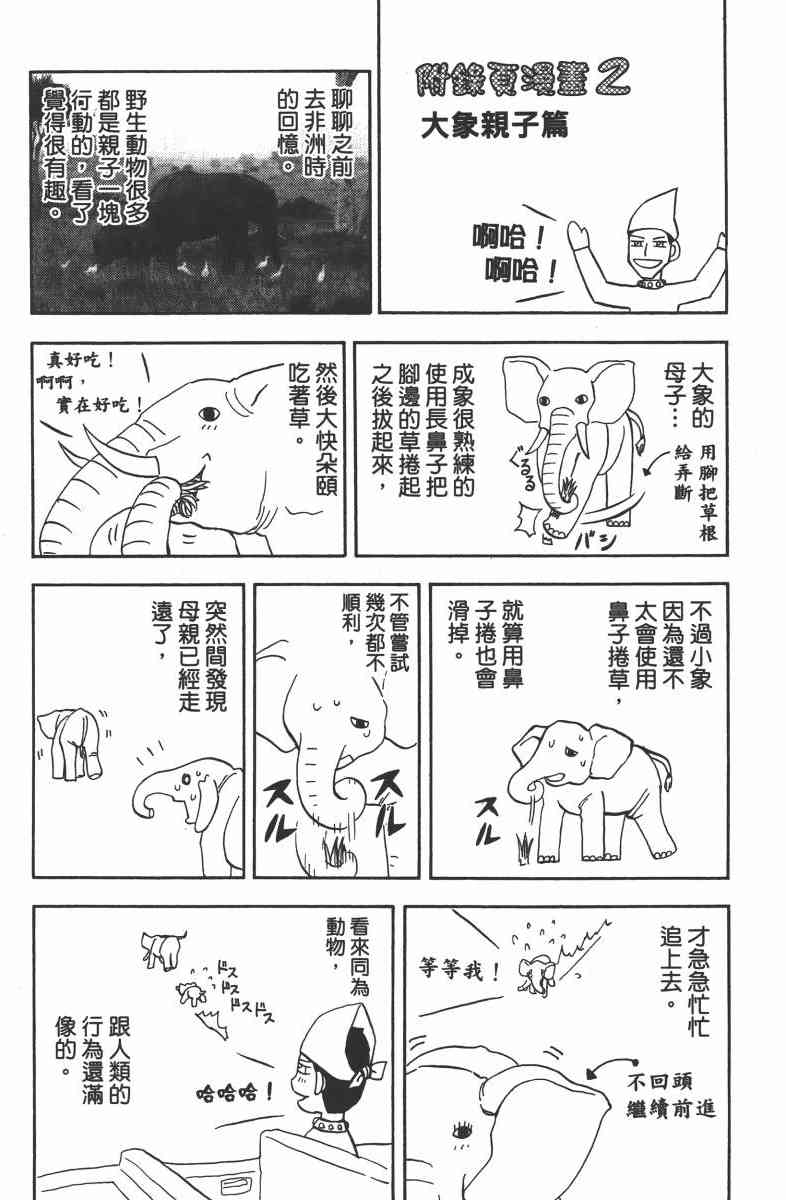 附錄頁漫畫2
大象親子篇
啊哈！
啊哈！
聊聊之前
去非洲時
的回憶。
野生動物很多
都是親子一塊
行動的，看了
覺得很有趣。
大象的
母子…
用腳把草根
給弄斷
ぐるる
バシ
成象很熟練的
使用長鼻子把
腳邊的草捲起
之後拔起來，
然後大快朵頤
吃著草。
真好吃！
啊啊，
實在好吃！
不過小象
因為還不
太會使用
鼻子捲草，
就算用鼻
子捲也會
滑掉。
スル
不管嘗試
幾次都不
順利，
スル
スル
突然間發現
母親已經走
遠了，
才急急忙忙
追上去。
等等我！
不回頭
繼續前進
看來同為
動物，
ドス
ドス
ドスドス
哈哈哈！
跟人類的
行為還滿
像的。